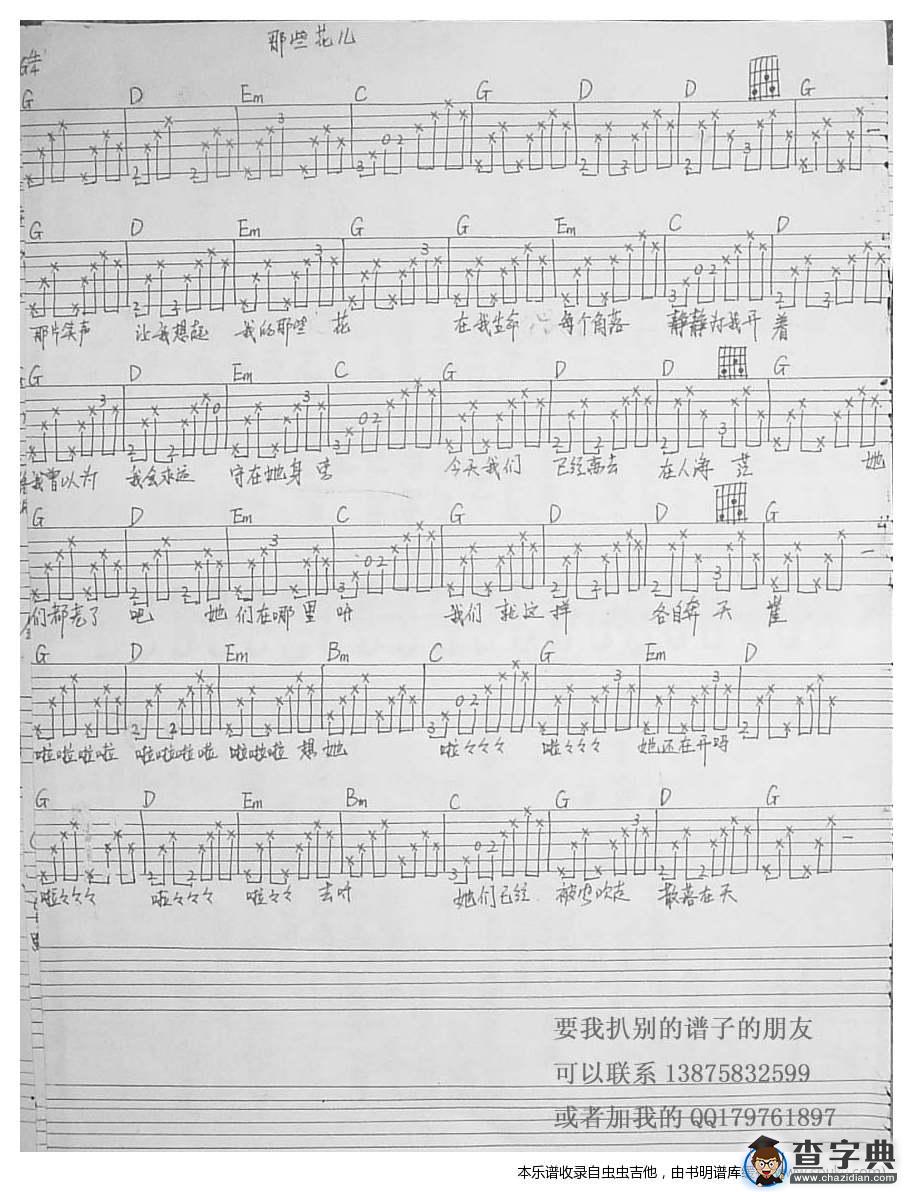 那些花儿
G D Em C G D D G
G D Em G G Em C D
那片笑声 让我想起 我的那些 花 在我生命 每个角落 静静为我开 着
G D Em C G D D G
我曾以为 我会永远 守在她身 旁 今天我们 已经离去 在人海 茫 她
G D Em C G D D G
们都老了 吧 她 们在哪里 呀 我们 就这样 各自奔 天 涯
G D Em Bm C G Em D
啦啦啦啦 啦啦啦啦 啦啦啦 想她 啦々々々 啦々々々 她还在开吗
G D Em Bm C G D G
啦々々々 啦々々々 啦々々 去呀 她们已经 被风吹走 散落在天
要我扒别的谱子的朋友
可以联系 13875832599
或者加我的 QQ179761897
本乐谱收录自虫虫吉他，由书明谱库
查字典
www.chazidian.com